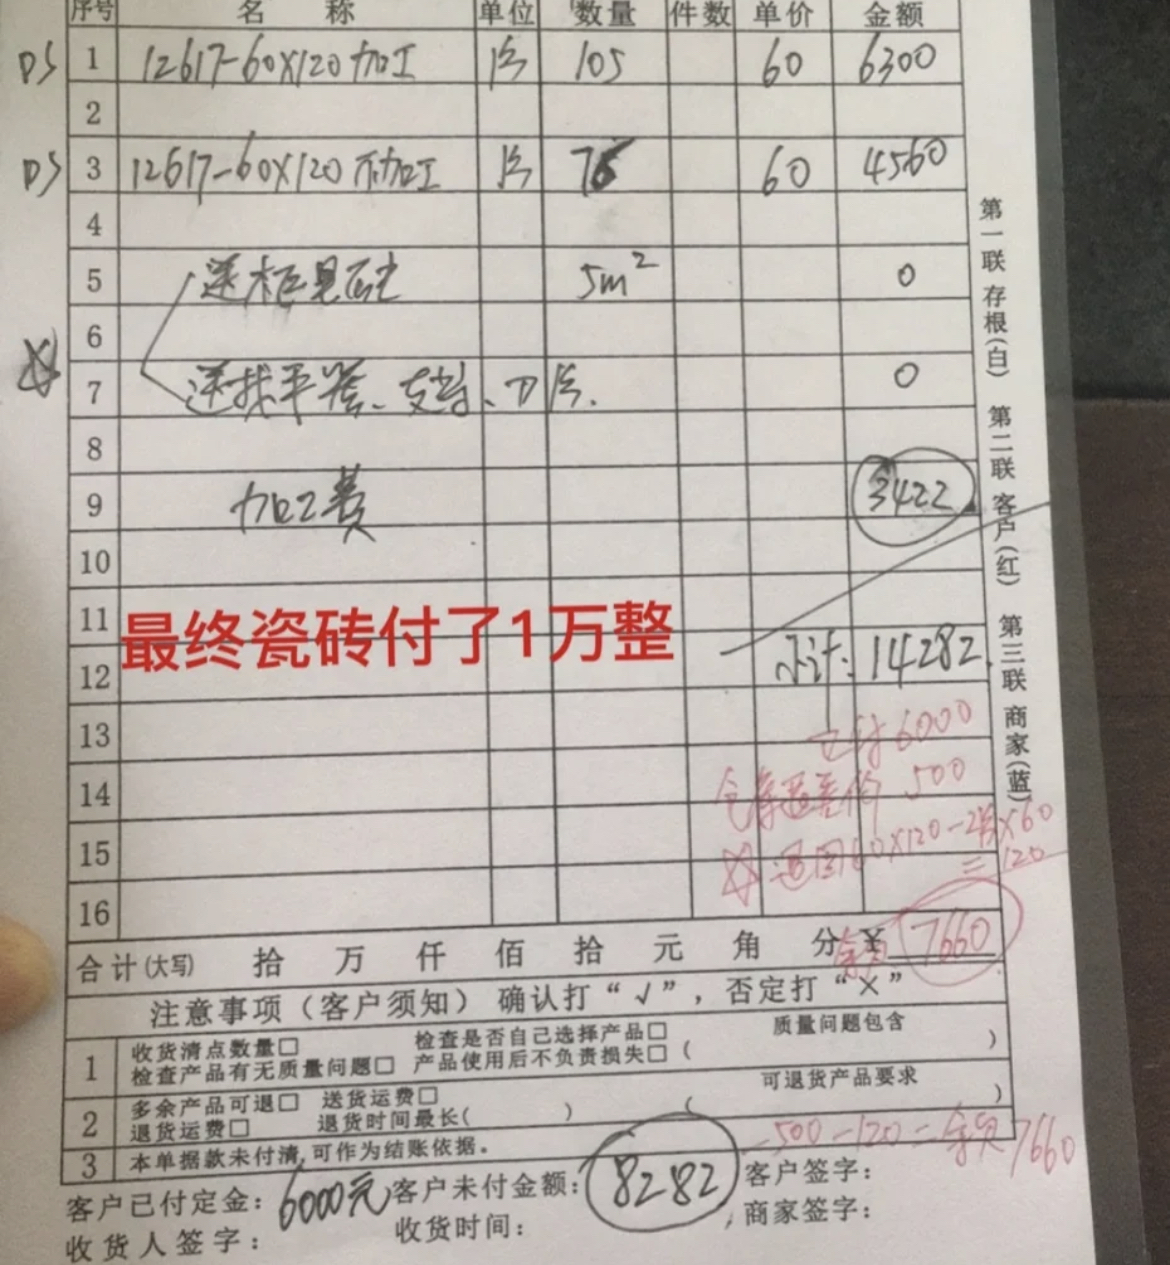 序号 名 称 单位 数量 件数 单价 金额
DS 1 12617-60X120 加工 片 105 60 6300
2
DS 3 12617-60X120 不加工 片 76 60 4560
4
5 送 5m² 0
6
7 送找平器、支 、刀片. 0
8
9 加工费 3422
10
11
最终瓷砖付了1万整
12 小计: 14282.
13 已付 6000
14 仓库退差价 500
15 退回60X120-2片X60
=120
16
合计(大写) 拾 万 仟 佰 拾 元 角 分 余款 ¥ 7660
注意事项(客户须知) 确认打“√”,否定打“×”
1 收货清点数量□ 检查是否自己选择产品□ 质量问题包含
检查产品有无质量问题□ 产品使用后不负责损失□ ( )
2 多余产品可退□ 送货运费□ 可退货产品要求
退货运费□ 退货时间最长( ) ( )
-500-120=余款7660
3 本单据款未付清,可作为结账依据。
客户已付定金: 6000元 客户未付金额: 8282 客户签字:
收货人签字: 收货时间: 商家签字:
第一联 存根(白) 第二联 客户(红) 第三联 商家(蓝)